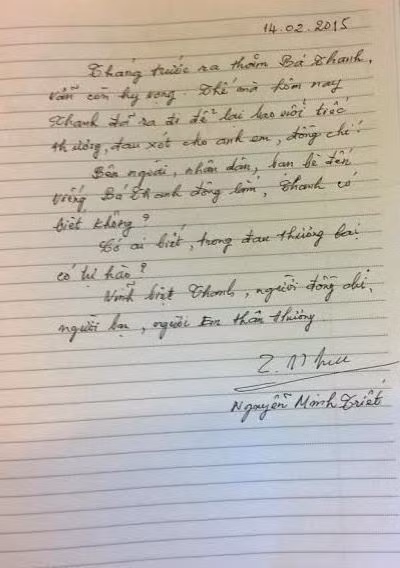 14.02.2015
Tháng trước ra thăm Bá Thanh,
vẫn còn hy vọng. Thế mà hôm nay
Thanh đã ra đi để lại bao nỗi tiếc
thương, đau xót cho anh em, đồng chí!
Bên ngoài, nhân dân, bạn bè đến
viếng Bá Thanh đông lắm, Thanh có
biết không?
Có ai biết, trong đau thương lại
có tự hào?
Vĩnh biệt Thanh, người đồng chí,
người bạn, người Em thân thương
Nguyễn Minh Triết